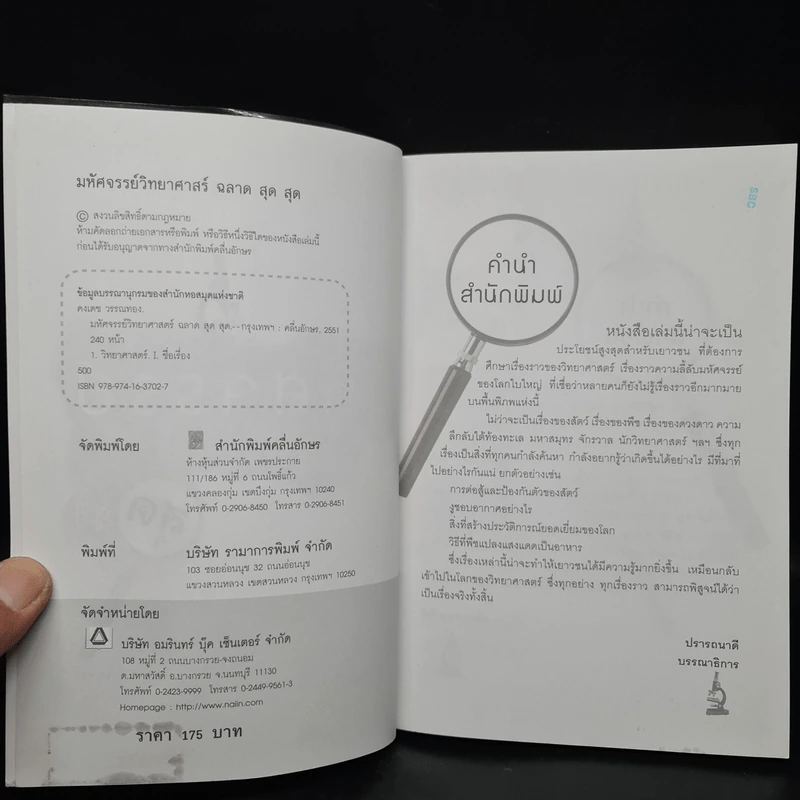 มหัศจรรย์วิทยาศาสร์ ฉลาด สุด สุด
© สงวนลิขสิทธิ์ตามกฎหมาย
ห้ามคัดลอกถ่ายเอกสารหรือพิมพ์ หรือวิธีหนึ่งวิธีใดของหนังสือเล่มนี้
ก่อนได้รับอนุญาตจากทางสำนักพิมพ์คลื่นอักษร
ข้อมูลบรรณานุกรมของสำนักหอสมุดแห่งชาติ
คงเดช วรรณทอง.
มหัศจรรย์วิทยาศาสตร์ ฉลาด สุด สุด.--กรุงเทพฯ : คลื่นอักษร, 2551
240 หน้า
1. วิทยาศาสตร์. I. ชื่อเรื่อง
500
ISBN 978-974-16-3702-7
จัดพิมพ์โดย สำนักพิมพ์คลื่นอักษร
ห้างหุ้นส่วนจำกัด เพชรประกาย
111/186 หมู่ที่ 6 ถนนโพธิ์แก้ว
แขวงคลองกุ่ม เขตบึงกุ่ม กรุงเทพฯ 10240
โทรศัพท์ 0-2906-8450 โทรสาร 0-2906-8451
พิมพ์ที่ บริษัท รามาการพิมพ์ จำกัด
103 ซอยอ่อนนุช 32 ถนนอ่อนนุช
แขวงสวนหลวง เขตสวนหลวง กรุงเทพฯ 10250
จัดจำหน่ายโดย
บริษัท อมรินทร์ บุ๊ค เซ็นเตอร์ จำกัด
108 หมู่ที่ 2 ถนนบางกรวย-จงถนอม
ต.มหาสวัสดิ์ อ.บางกรวย จ.นนทบุรี 11130
โทรศัพท์ 0-2423-9999 โทรสาร 0-2449-9561-3
Homepage : http://www.naiin.com
ราคา 175 บาท
คำนำ
สำนักพิมพ์
หนังสือเล่มนี้น่าจะเป็น
ประโยชน์สูงสุดสำหรับเยาวชน ที่ต้องการ
ศึกษาเรื่องราวของวิทยาศาสตร์ เรื่องราวความลี้ลับมหัศจรรย์
ของโลกใบใหญ่ ที่เชื่อว่าหลายคนก็ยังไม่รู้เรื่องราวอีกมากมาย
บนพื้นพิภพแห่งนี้
ไม่ว่าจะเป็นเรื่องของสัตว์ เรื่องของพืช เรื่องของดวงดาว ความ
ลึกลับใต้ท้องทะเล มหาสมุทร จักรวาล นักวิทยาศาสตร์ ฯลฯ ซึ่งทุก
เรื่องเป็นสิ่งที่ทุกคนกำลังค้นหา กำลังอยากรู้ว่าเกิดขึ้นได้อย่างไร มีที่มาที่
ไปอย่างไรกันแน่ ยกตัวอย่างเช่น
การต่อสู้และป้องกันตัวของสัตว์
งูชอบอากาศอย่างไร
สิ่งที่สร้างประวัติการณ์ยอดเยี่ยมของโลก
วิธีที่พืชแปลงแสงแดดเป็นอาหาร
ซึ่งเรื่องเหล่านี้น่าจะทำให้เยาวชนได้มีความรู้มากยิ่งขึ้น เหมือนกลับ
เข้าไปในโลกของวิทยาศาสตร์ ซึ่งทุกอย่าง ทุกเรื่องราว สามารถพิสูจน์ได้ว่า
เป็นเรื่องจริงทั้งสิ้น
ปรารถนาดี
บรรณาธิการ